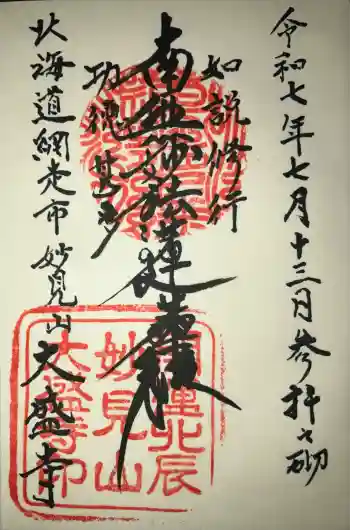 令和七年七月十三日参拝之砌
如説修行
南無妙法蓮華経
功徳甚多
北海道網走市妙見山大盛寺
開運北辰
妙見山
大盛寺印